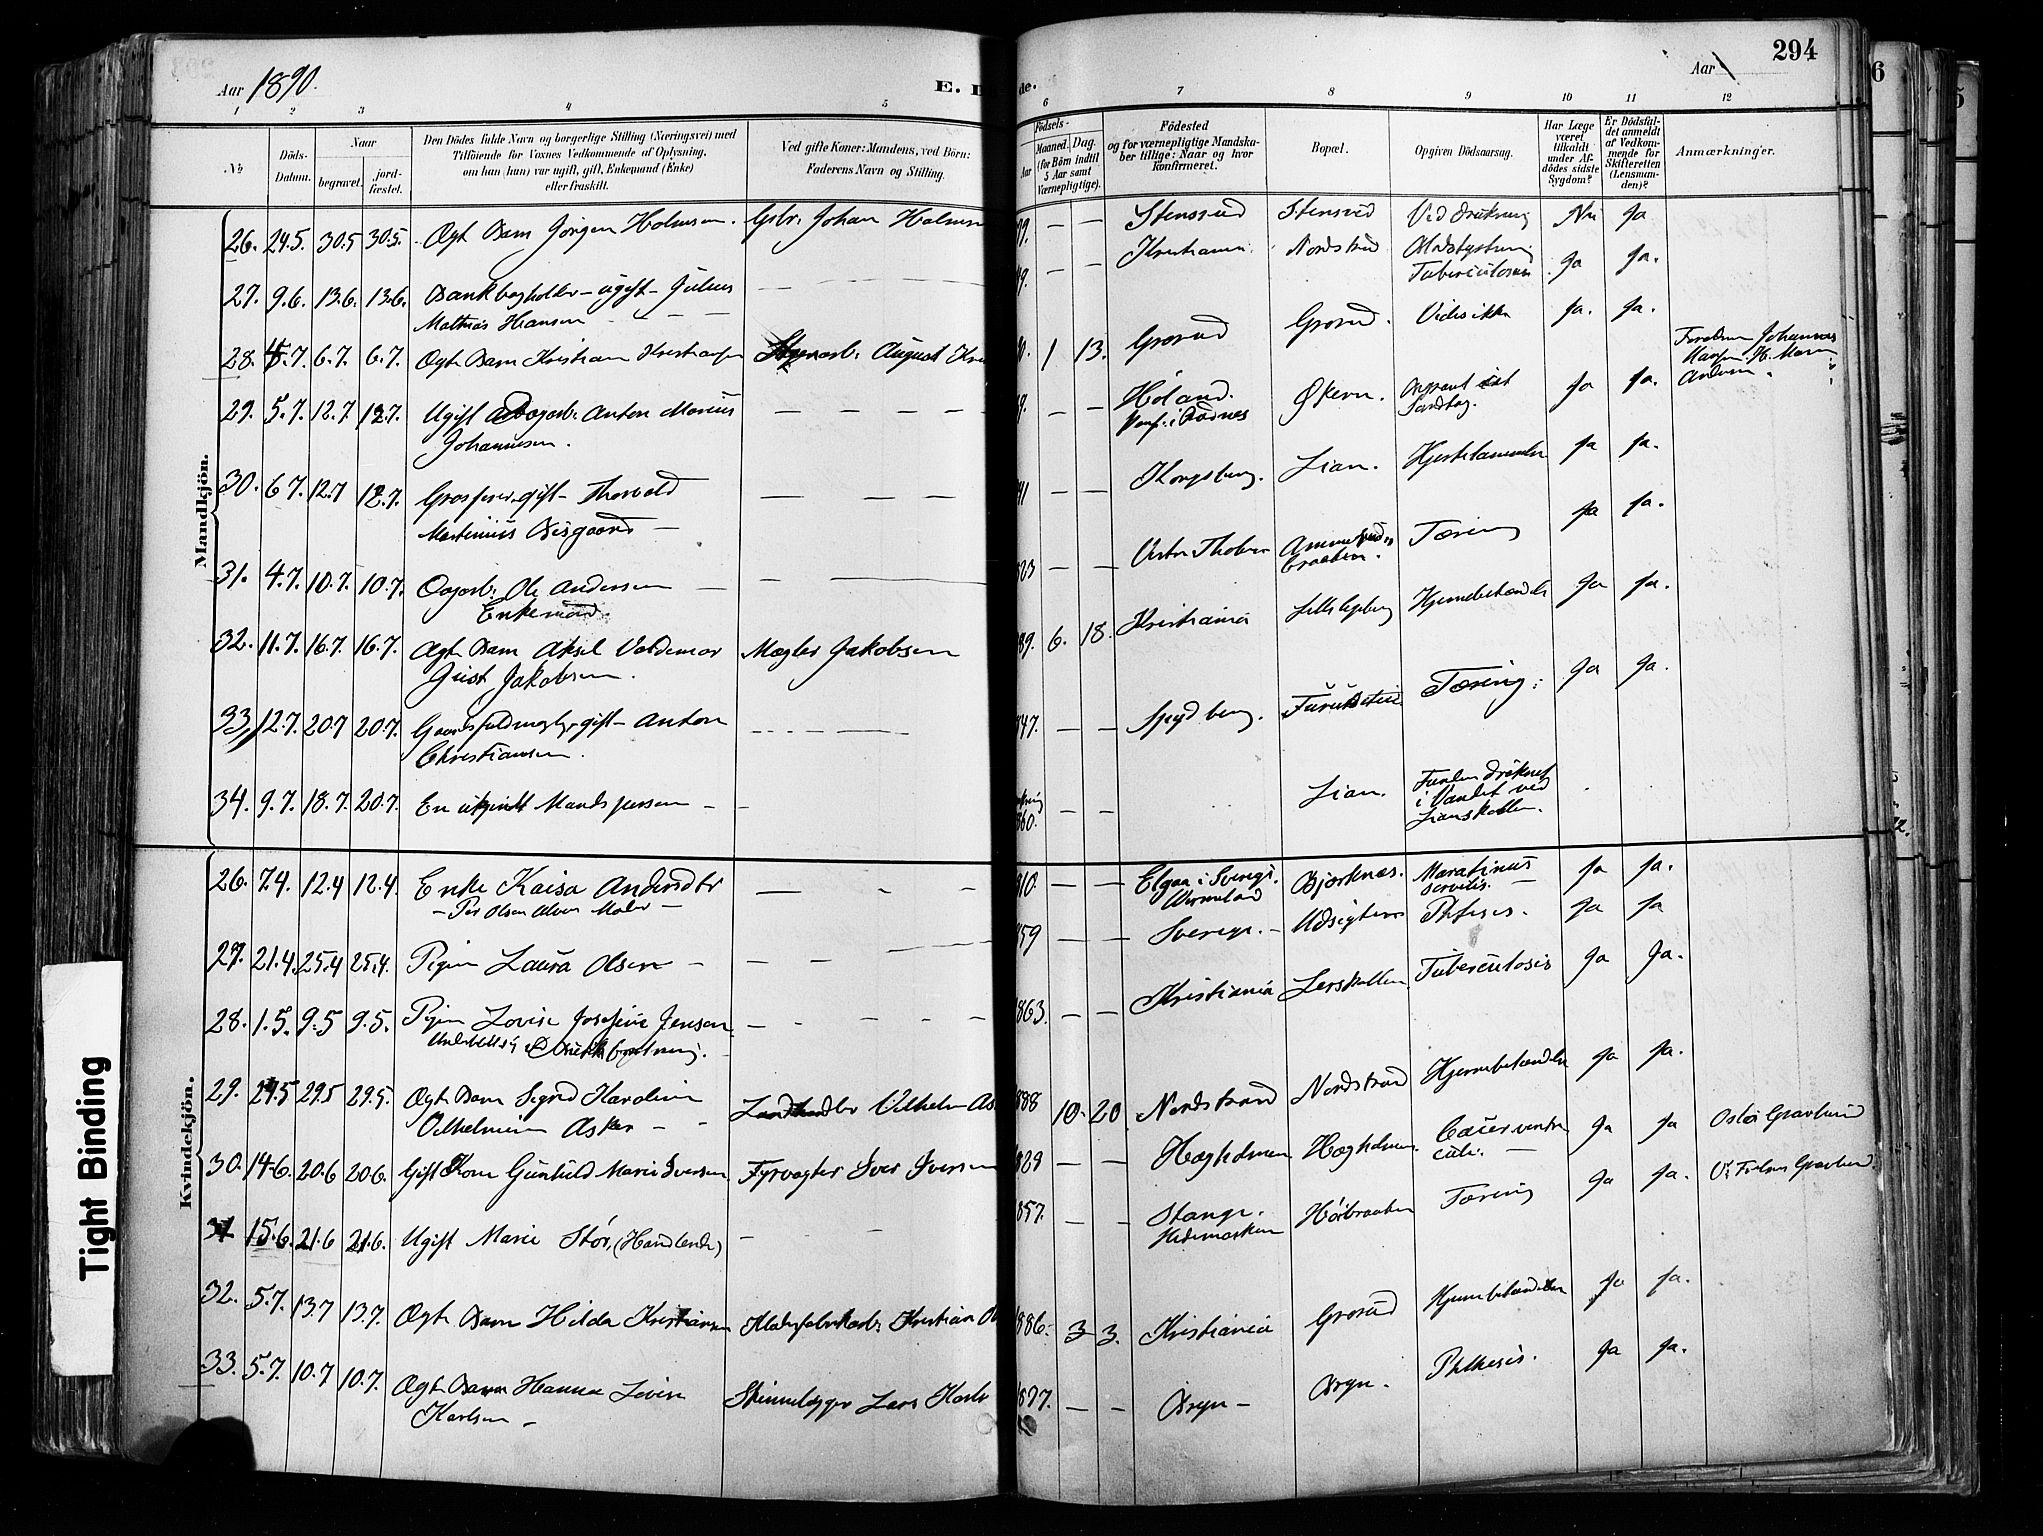 Aar 1890.
E. D
de.
Aar
294
1 2 3 4 5 6 7 8 9 10 11 12
No
Döds-Datum.
Naar
begravet.
jord-fæstet.
Den Dödes fulde Navn og borgerlige Stilling (Næringsvei) med
Tilföiende for Voxnes Vedkommende af Oplysning,
om han (hun) var ugift, gift, Enkemand (Enke)
eller fraskilt.
Ved gifte Koner: Mandens, ved Börn:
Faderens Navn og Stilling.
Födsels-
Aar
Maaned. Dag.
(for Börn indtil
5 Aar samt
Værnepligtige).
Födested
og for værnepligtige Mandska-
ber tillige: Naar og hvor
Konfirmeret.
Bopæl.
Opgiven Dödsaarsag.
Har Læge
været
tilkaldt
under Af-
dödes sidste
Sygdom?
Er Dödsfal-
det anmeldt
af Vedkom-
mende for
Skifteretten
(Lensman-
den)?
Anmærkninger.
Mandkjön.
26. 24.5. 30.5 30.5. Ægt Barn Jörgen Holmsen. Gbr. Johan Holmsen 9. — — Stensrud Stensrud Ved drukning Nei Ja
27. 9.6. 13.6. 13.6. Bankbogholder – ugift – Julius
Mathias Hansen — — — 49. — — Kristiania. Nordstrand Tuberculosis Ja Ja.
28. 5.7. 6.7. 6.7. Ægt Barn Kristian Kristiansen August Kri 1 13. Grorud Grorud. Vides ikke Ja. Ja.
29. 5.7. 12.7 12.7. Ugift Anton Marius
Johannesen. — — Höland.
Økern. Sandtag. Ja Ja.
30. 6.7. 12.7 12.7. Grosserer, gift – Thorvald
Martinius Bisgaard — 41 — — Kongsberg. Lian. Hjertelammelse Ja Ja.
31. 4.7. 10.7. 10.7. Dagarb. Ole Andersen
Enkemand. 23 — — Vestre Thoten Ammerud
braaten. Tæring Ja Ja.
32. 11.7. 16.7. 16.7. Ægt Barn Aksel Valdemar
Just Jakobsen. Mægler Jakobsen 89. 6. 18. Kristiania Hjernebetændelse Ja Ja.
33. 12.7. 20.7 20.7. gift – Anton
Christiansen. 47. — — Spydberg. Tæring. Ja Ja.
34. 9.7. 18.7. 20.7. En ukjendt Mandsperson – – 60. — — Lian. Funden druknet
i Vandet ved
Lianskollen.
Krindekjön.
26. 7.4. 12.4 12.4. Enke Kaisa Andersdtr
– Per Olsen Moder – 10. — — Elgaa i Sverige.
Wermeland Bjørknæs. Marasmus
senilis. — Ja Ja.
27. 21.4. 25.4 25.4. Pigen Laura Olsen – 59 — — Sverige. – Udsigten Phtisis. Ja Ja
28. 1.5. 9.5 9.5. Pigen Lovise Josefine Jensen
863. — — Kristiania Lerskallen Tuberculosis Ja Ja.
29. 24.5 29.5 29.5. Ægt Barn Sigrid Karoline
Vilhelmine Asker – – Landhandler Vilhelm As 888 10 20 Nordstrand Nordstrand Hjernebetændelse Ja Ja.
30. 14.6. 20.6 20.6. Gift Kone Gunhild Marie Iversen Fyrvogter Iver Iversen 829 — — Hægholmen Hægholmen Cancer ventri
culi. — Ja Ja Oslo Gravlund
31 15.6. 21.6 21.6. Ugift Marie Stör, (Handlende) – 857. — — Stange.
Hedemarken Hörbraaten Tæring Ja Ja. V. Frelsers Gravlund.
32. 5.7. 13.7 13.7. Ægt Barn Hilda Kristiansen Kristian 886. 3 3. Kristiania Grorud Hjernebetændelse Ja Ja.
33. 5.7. 10.7 10.7. Ægt Barn Hanna Lovise
Karlsen – Skinnelægger Lars Karls 877. — — Bryn – Bryn. Phthisis. Ja Ja.
Tight Binding